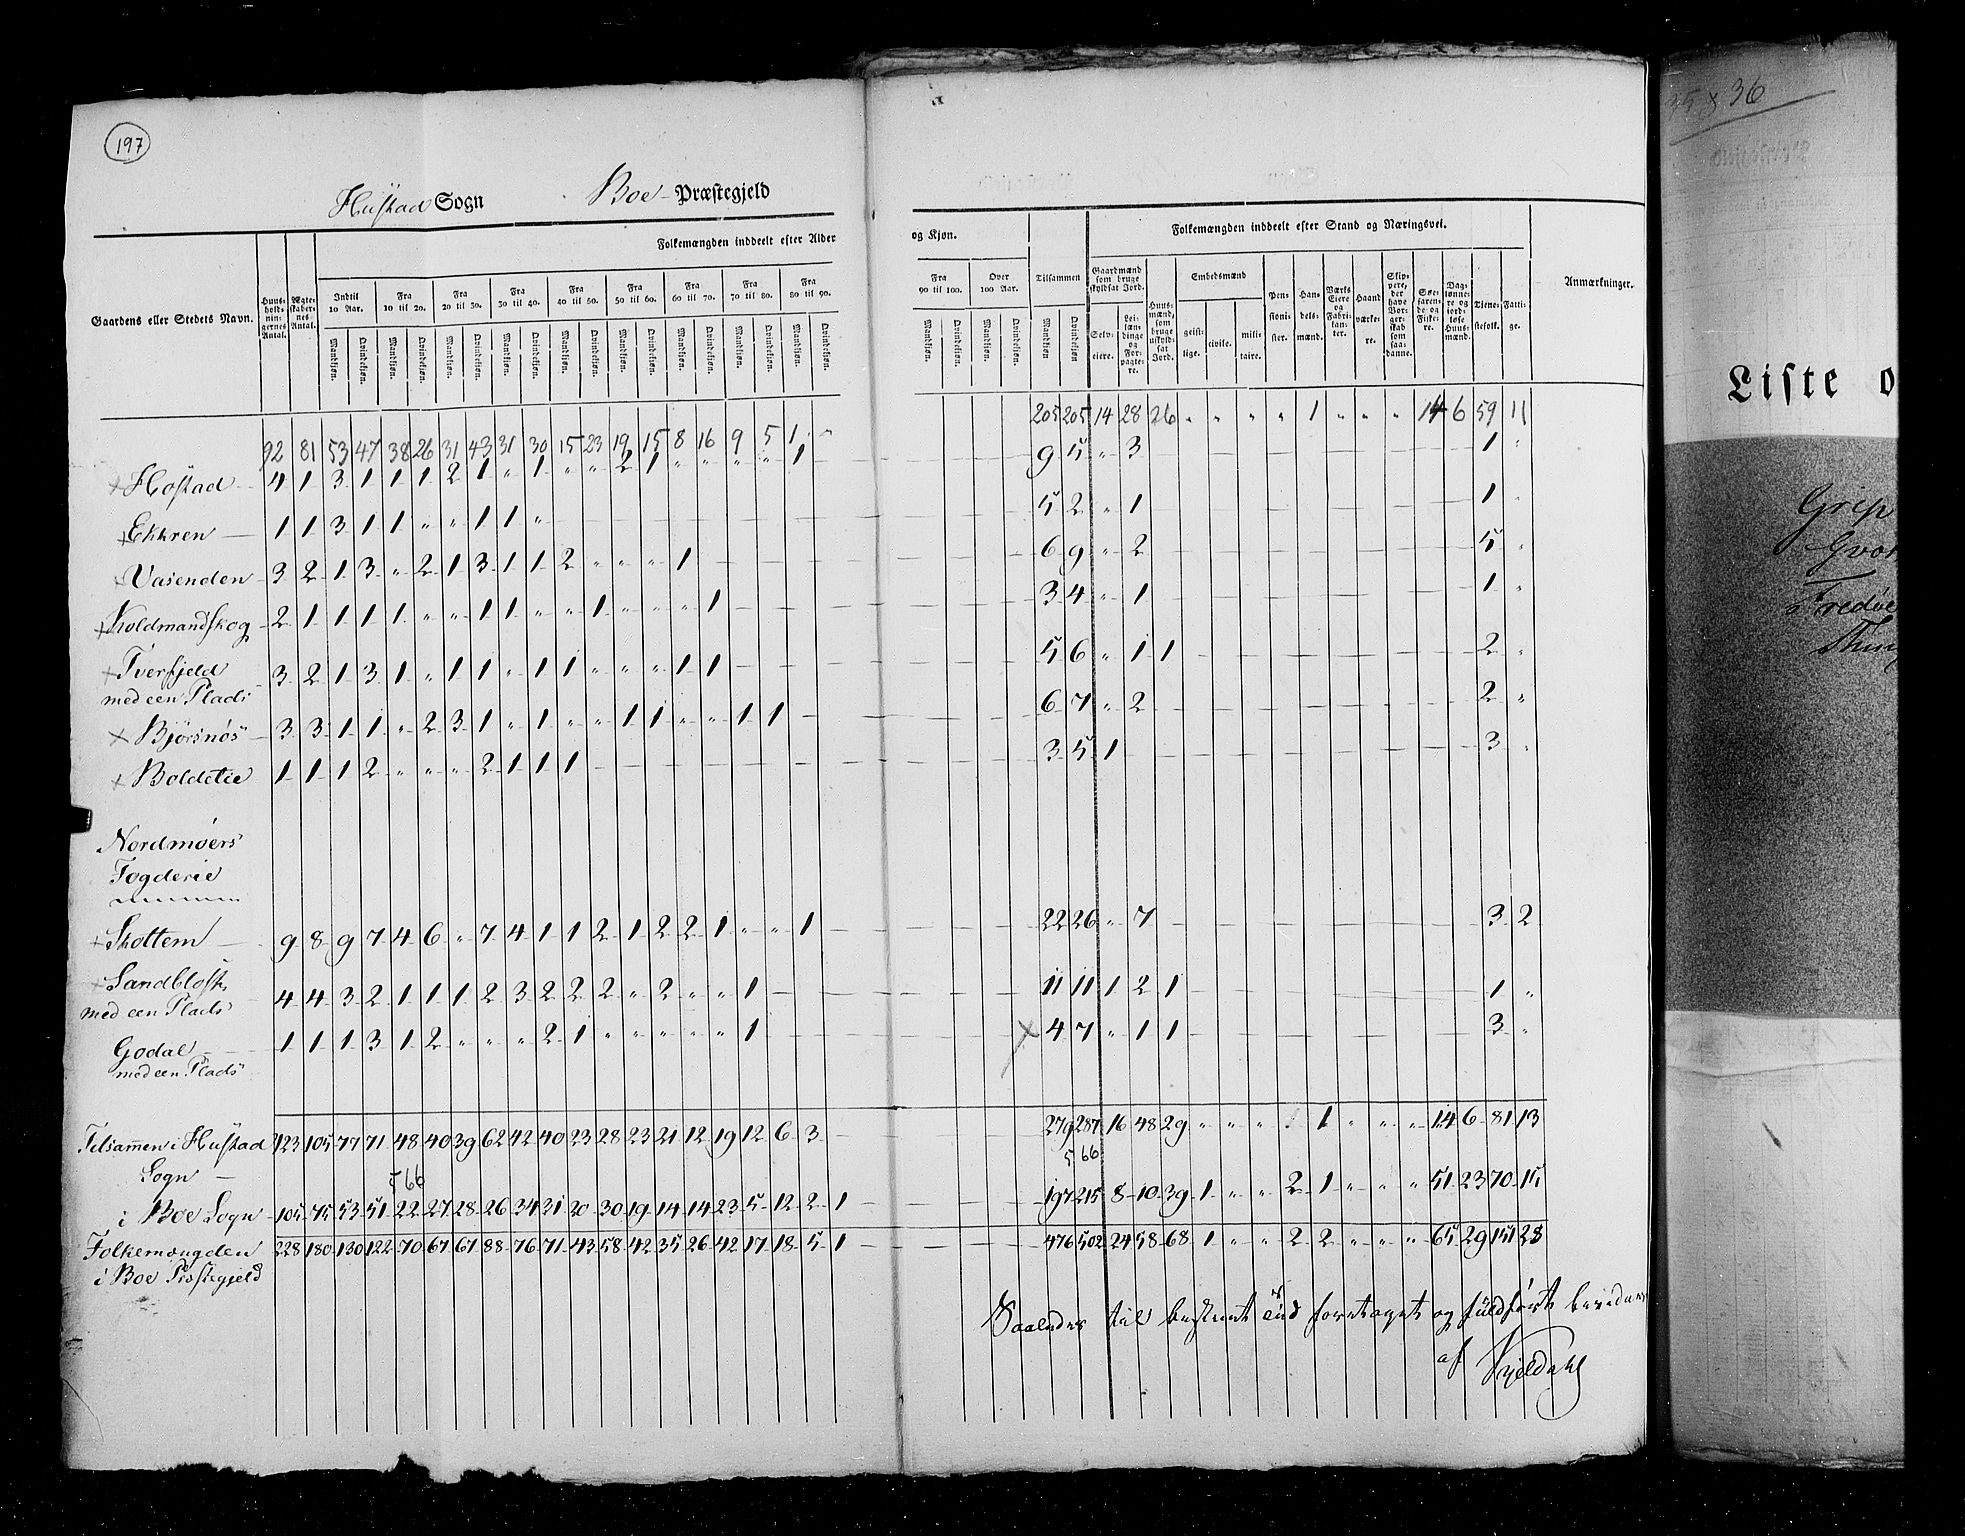 197
Hustad Sogn Boe Præstegjeld
Gaardens eller Stedets Navn. Huus-holdningernes Antal. Ægteskabernes Antal. Folkemængden inddeelt efter Alder og Kjøn.
Indtil 10 Aar. Fra 10 til 20. Fra 20 til 30. Fra 30 til 40. Fra 40 til 50. Fra 50 til 60. Fra 60 til 70. Fra 70 til 80. Fra 80 til 90. Fra 90 til 100. Over 100 Aar. Tilsammen
Mandkjøn. Qvindekjøn. Mandkjøn. Qvindekjøn. Mandkjøn. Qvindekjøn. Mandkjøn. Qvindekjøn. Mandkjøn. Qvindekjøn. Mandkjøn. Qvindekjøn. Mandkjøn. Qvindekjøn. Mandkjøn. Qvindekjøn. Mandkjøn. Qvindekjøn. Mandkjøn. Qvindekjøn. Mandkjøn. Qvindekjøn. Mandkjøn Qvindekjøn.
Folkemængden inddeelt efter Stand og Næringsvei.
Gaardmænd som bruge skyldsat Jord. Selveiere. Leilændinge og Forpagtere. Huusmænd, som bruge uskyldsat Jord. Embedsmænd geistlige. civile. militaire. Pensionister. Handelsmænd. Værks Eiere og Fabrikanter. Haandværkere. Skippere, der have Borgerskab som saadanne. Søefarende og Fiskere. Daglønnere og jordløse Huusmænd. Tjenestefolk. Fattige.
Anmærkninger.
92 81 53 47 38 26 31 43 31 30 15 23 19 15 8 16 9 5 1 " 205 205 14 28 26 " " " " 1 " " " 14 6 59 11
Hostad 4 1 3 1 1 1 2 1 " 1 " " 2 1 " " " " 1 9 5 " 3 1 "
Ekkren 1 1 3 1 1 " " 1 1 " 5 2 " 1 1 "
Vasenden 3 2 1 3 " 2 1 3 1 1 2 " " " 1 6 9 " 2 5 "
Koldmandskog 2 1 1 1 1 " " 1 1 " " 1 " " " 1 3 4 " 1 1 "
Tverfjeld 3 2 1 3 1 " 1 1 " 1 1 " " " 1 1 5 6 " 1 1 2 "
med een Plads
Bjørsnøs 3 3 1 1 " 2 3 1 " 1 " " 1 1 " " 1 1 6 7 " 2 2 "
Boldetie 1 1 1 2 " " " 2 1 1 1 3 5 1 3 "
Nordmøers
Fogderie
Skottem 9 8 9 7 4 6 " 7 4 1 1 2 1 2 2 1 " " 1 22 26 " 7 3 2
Sandblosk 4 4 3 2 1 1 1 2 3 2 2 2 " 2 " " 1 11 11 1 2 1 1 "
med een Plads
Godal 1 1 1 3 1 2 " " " 2 1 " " " " " 1 4 7 " 1 1 3 "
med een Plads
Tilsamen i Hustad 123 105 77 71 48 40 39 62 42 40 23 28 23 21 12 19 12 6 3 279 287 16 48 29 " " " 1 " " " 14 6 81 13
Sogn 566 566
i Boe Sogn 105 75 53 51 22 27 28 26 34 31 20 30 19 14 14 23 5 12 2 1 197 215 8 10 39 1 " " 2 1 " " " 51 23 70 15
Folkemængden 228 180 130 122 70 67 67 88 76 71 43 58 42 35 26 42 17 18 5 1 476 502 24 58 68 1 " " 2 2 " " " 65 29 151 28
i Boe Præstegjeld
Saaledes til bestemt Tid foretaget og fuldført bevidnes
af Kjeldahl
35 & 36
Liste o
Grip
Qver
Fredøe
Thing